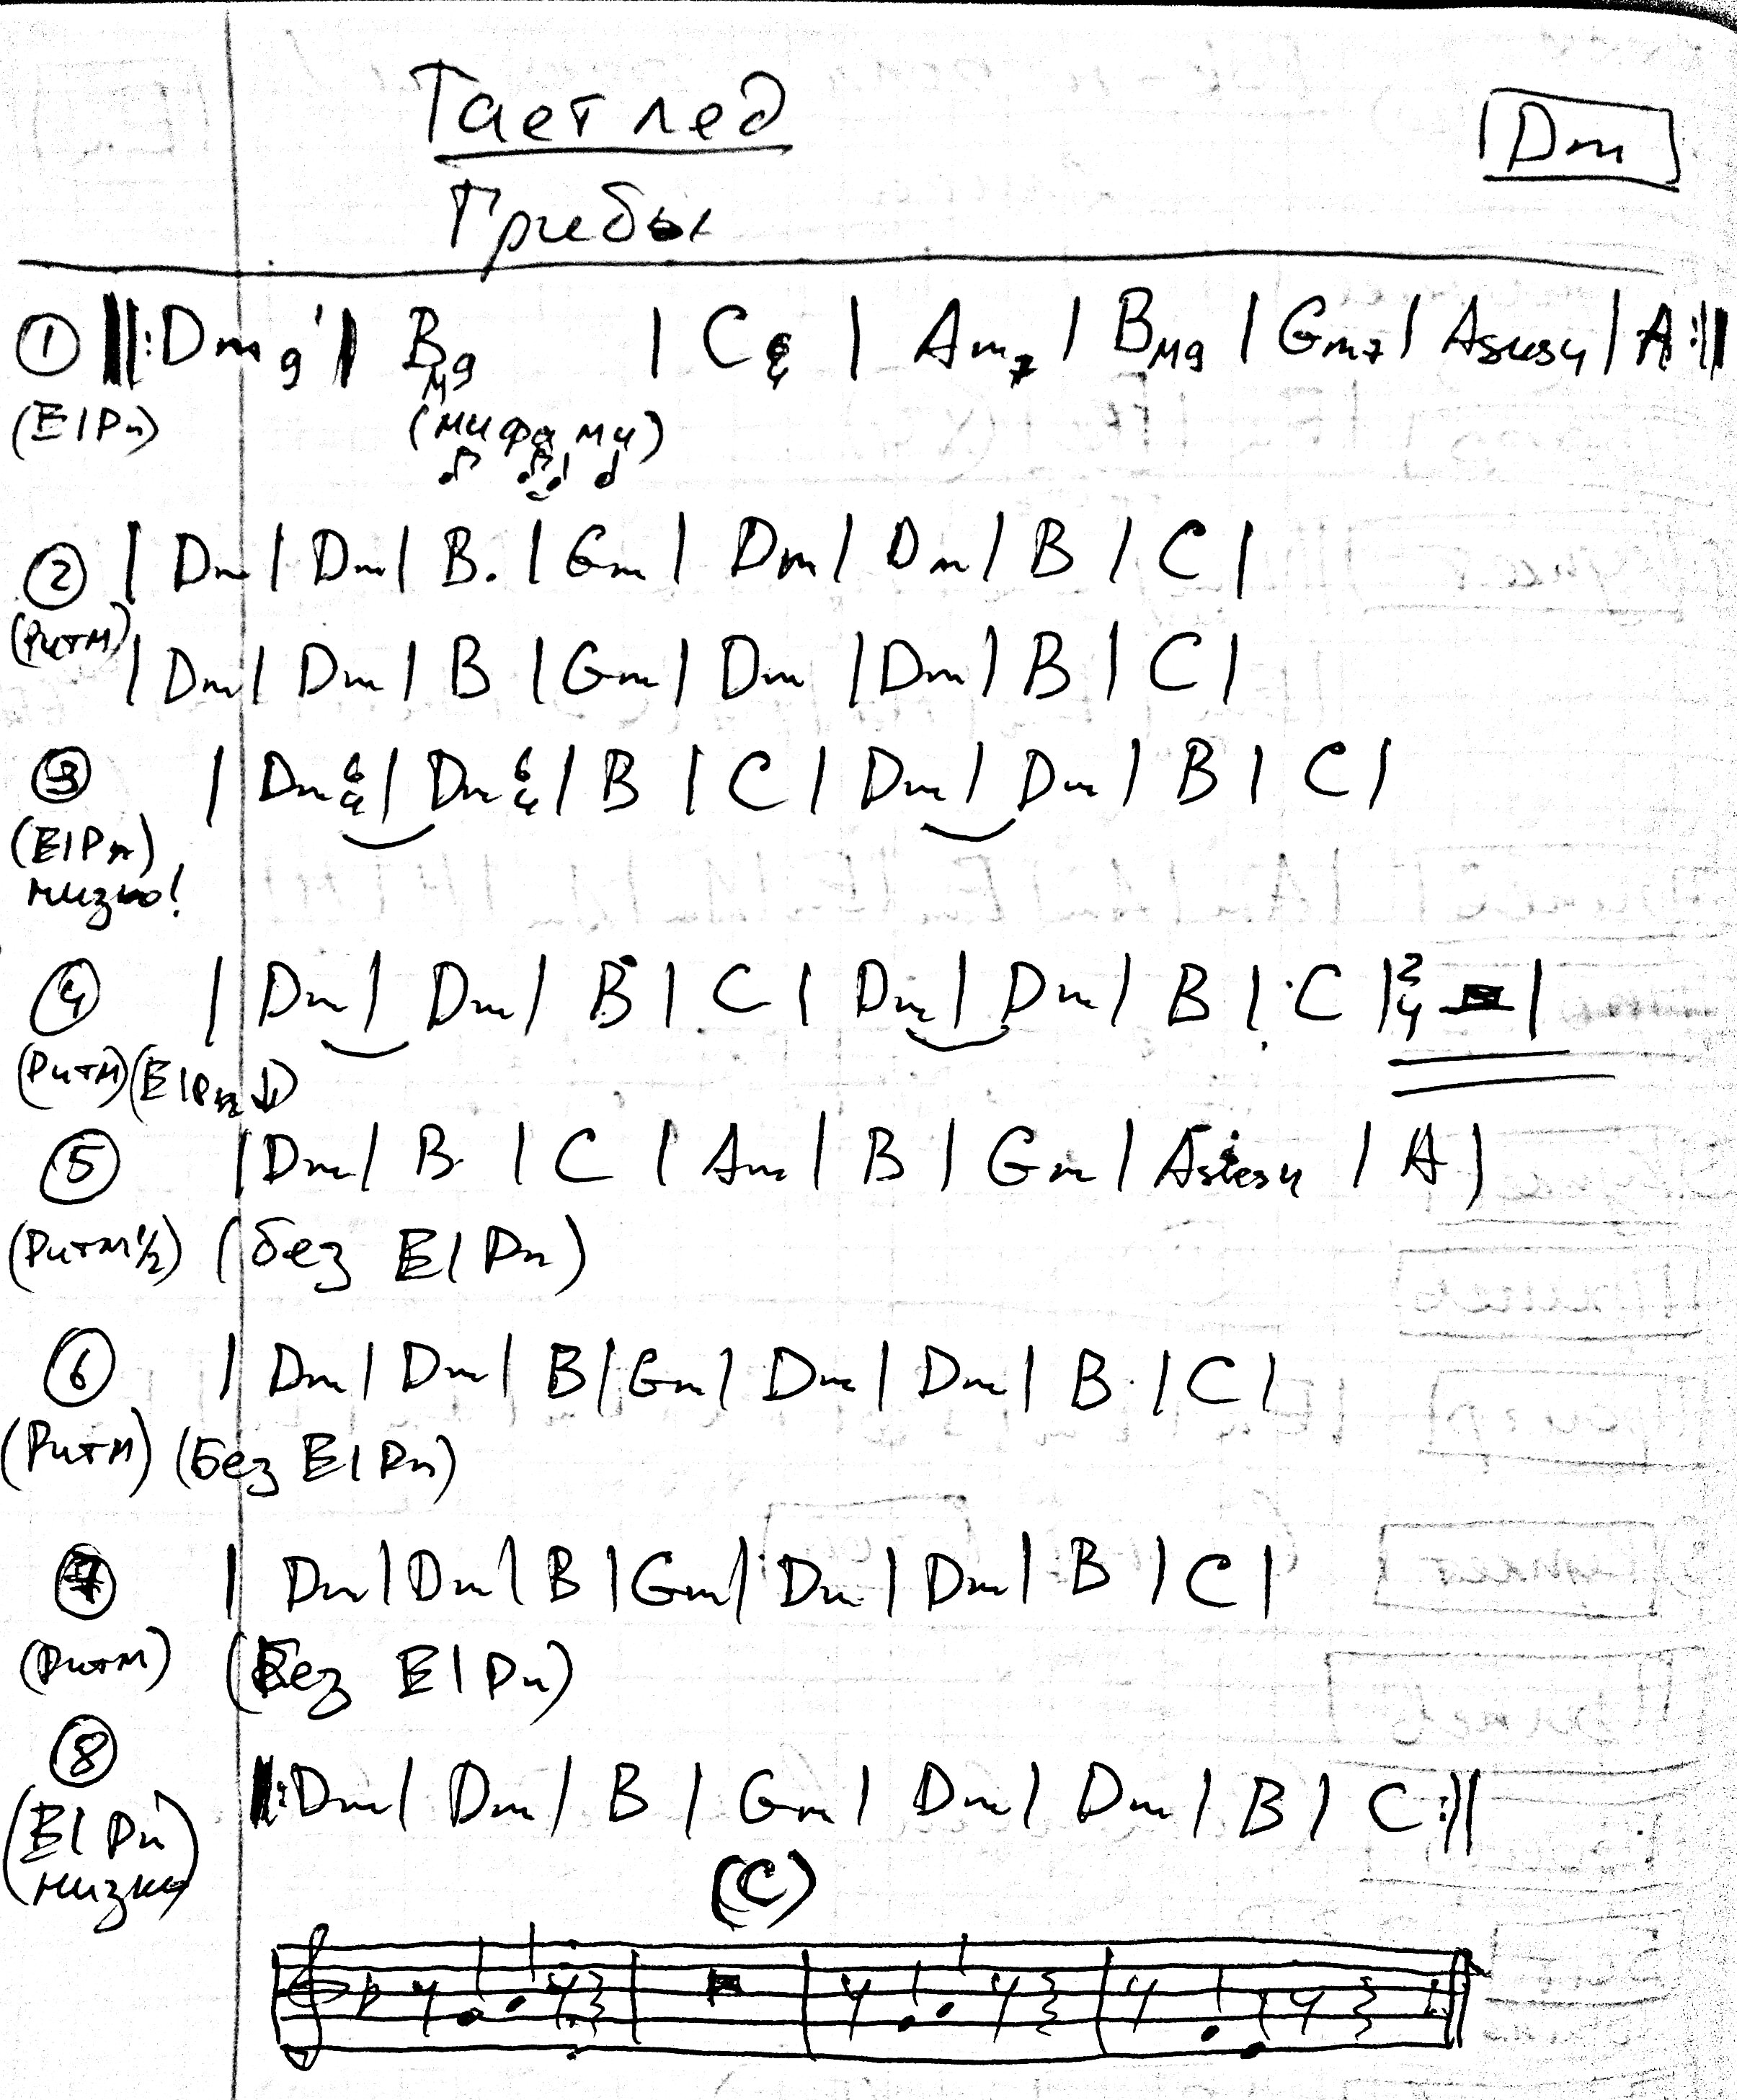 Тает лед
Dm
Грибы
① ‖:Dm9 | BM9 | C6/4 | Am7 | BM9 | Gm7 | Asus4 | A:‖
(ElPn) (ми фа ми)
② | Dm | Dm | B | Gm | Dm | Dm | B | C |
(Ритм)
| Dm | Dm | B | Gm | Dm | Dm | B | C |
③ | Dm6/4 | Dm6/4 | B | C | Dm | Dm | B | C |
(ElPn)
низко!
④ | Dm | Dm | B | C | Dm | Dm | B | C | 2/4 |
(Ритм) (ElPn ↓)
⑤ | Dm | B | C | Am | B | Gm | Asus4 | A |
(Ритм 1/2) (без ElPn)
⑥ | Dm | Dm | B | Gm | Dm | Dm | B | C |
(Ритм) (Без ElPn)
⑦ | Dm | Dm | B | Gm | Dm | Dm | B | C |
(Ритм) (Без ElPn)
⑧ ‖:Dm | Dm | B | Gm | Dm | Dm | B | C:‖
(ElPn
низко)
(C)